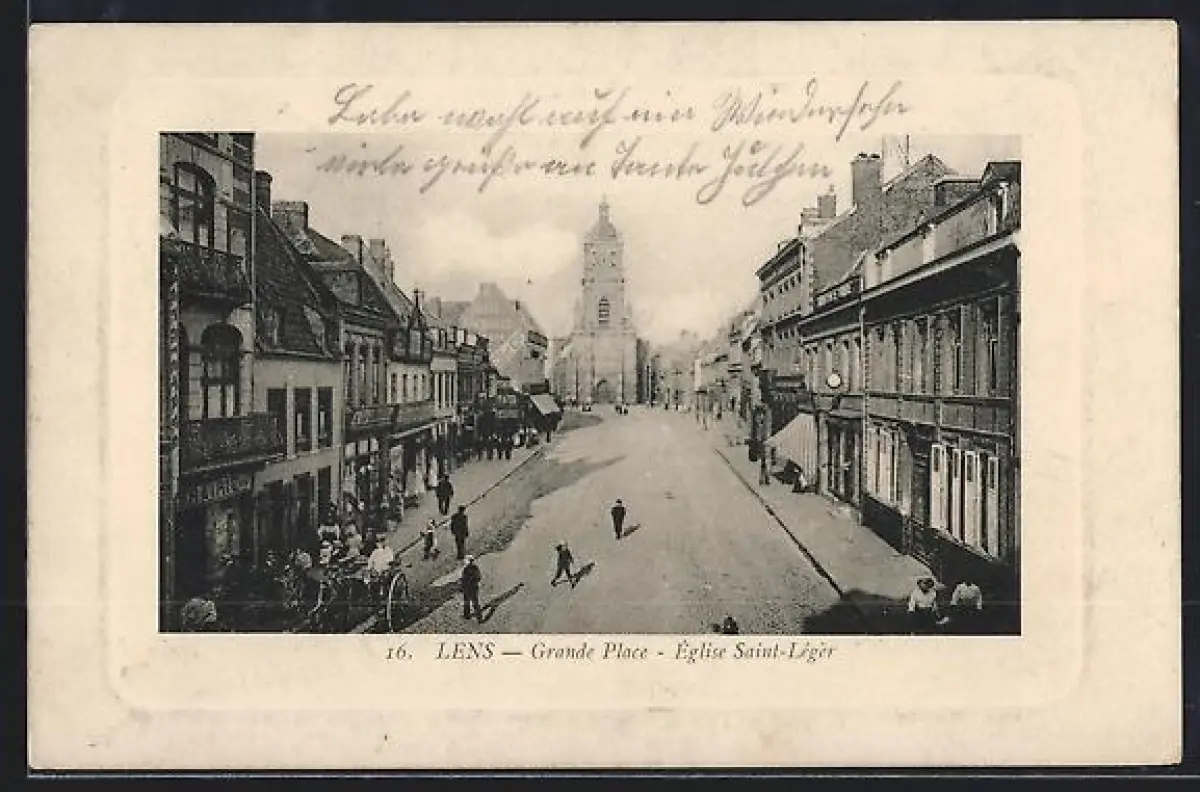 Lebe wohl auf ein Wiedersehn
viele Grüße an Tante Julchen
16. LENS — Grande Place - Église Saint-Légèr